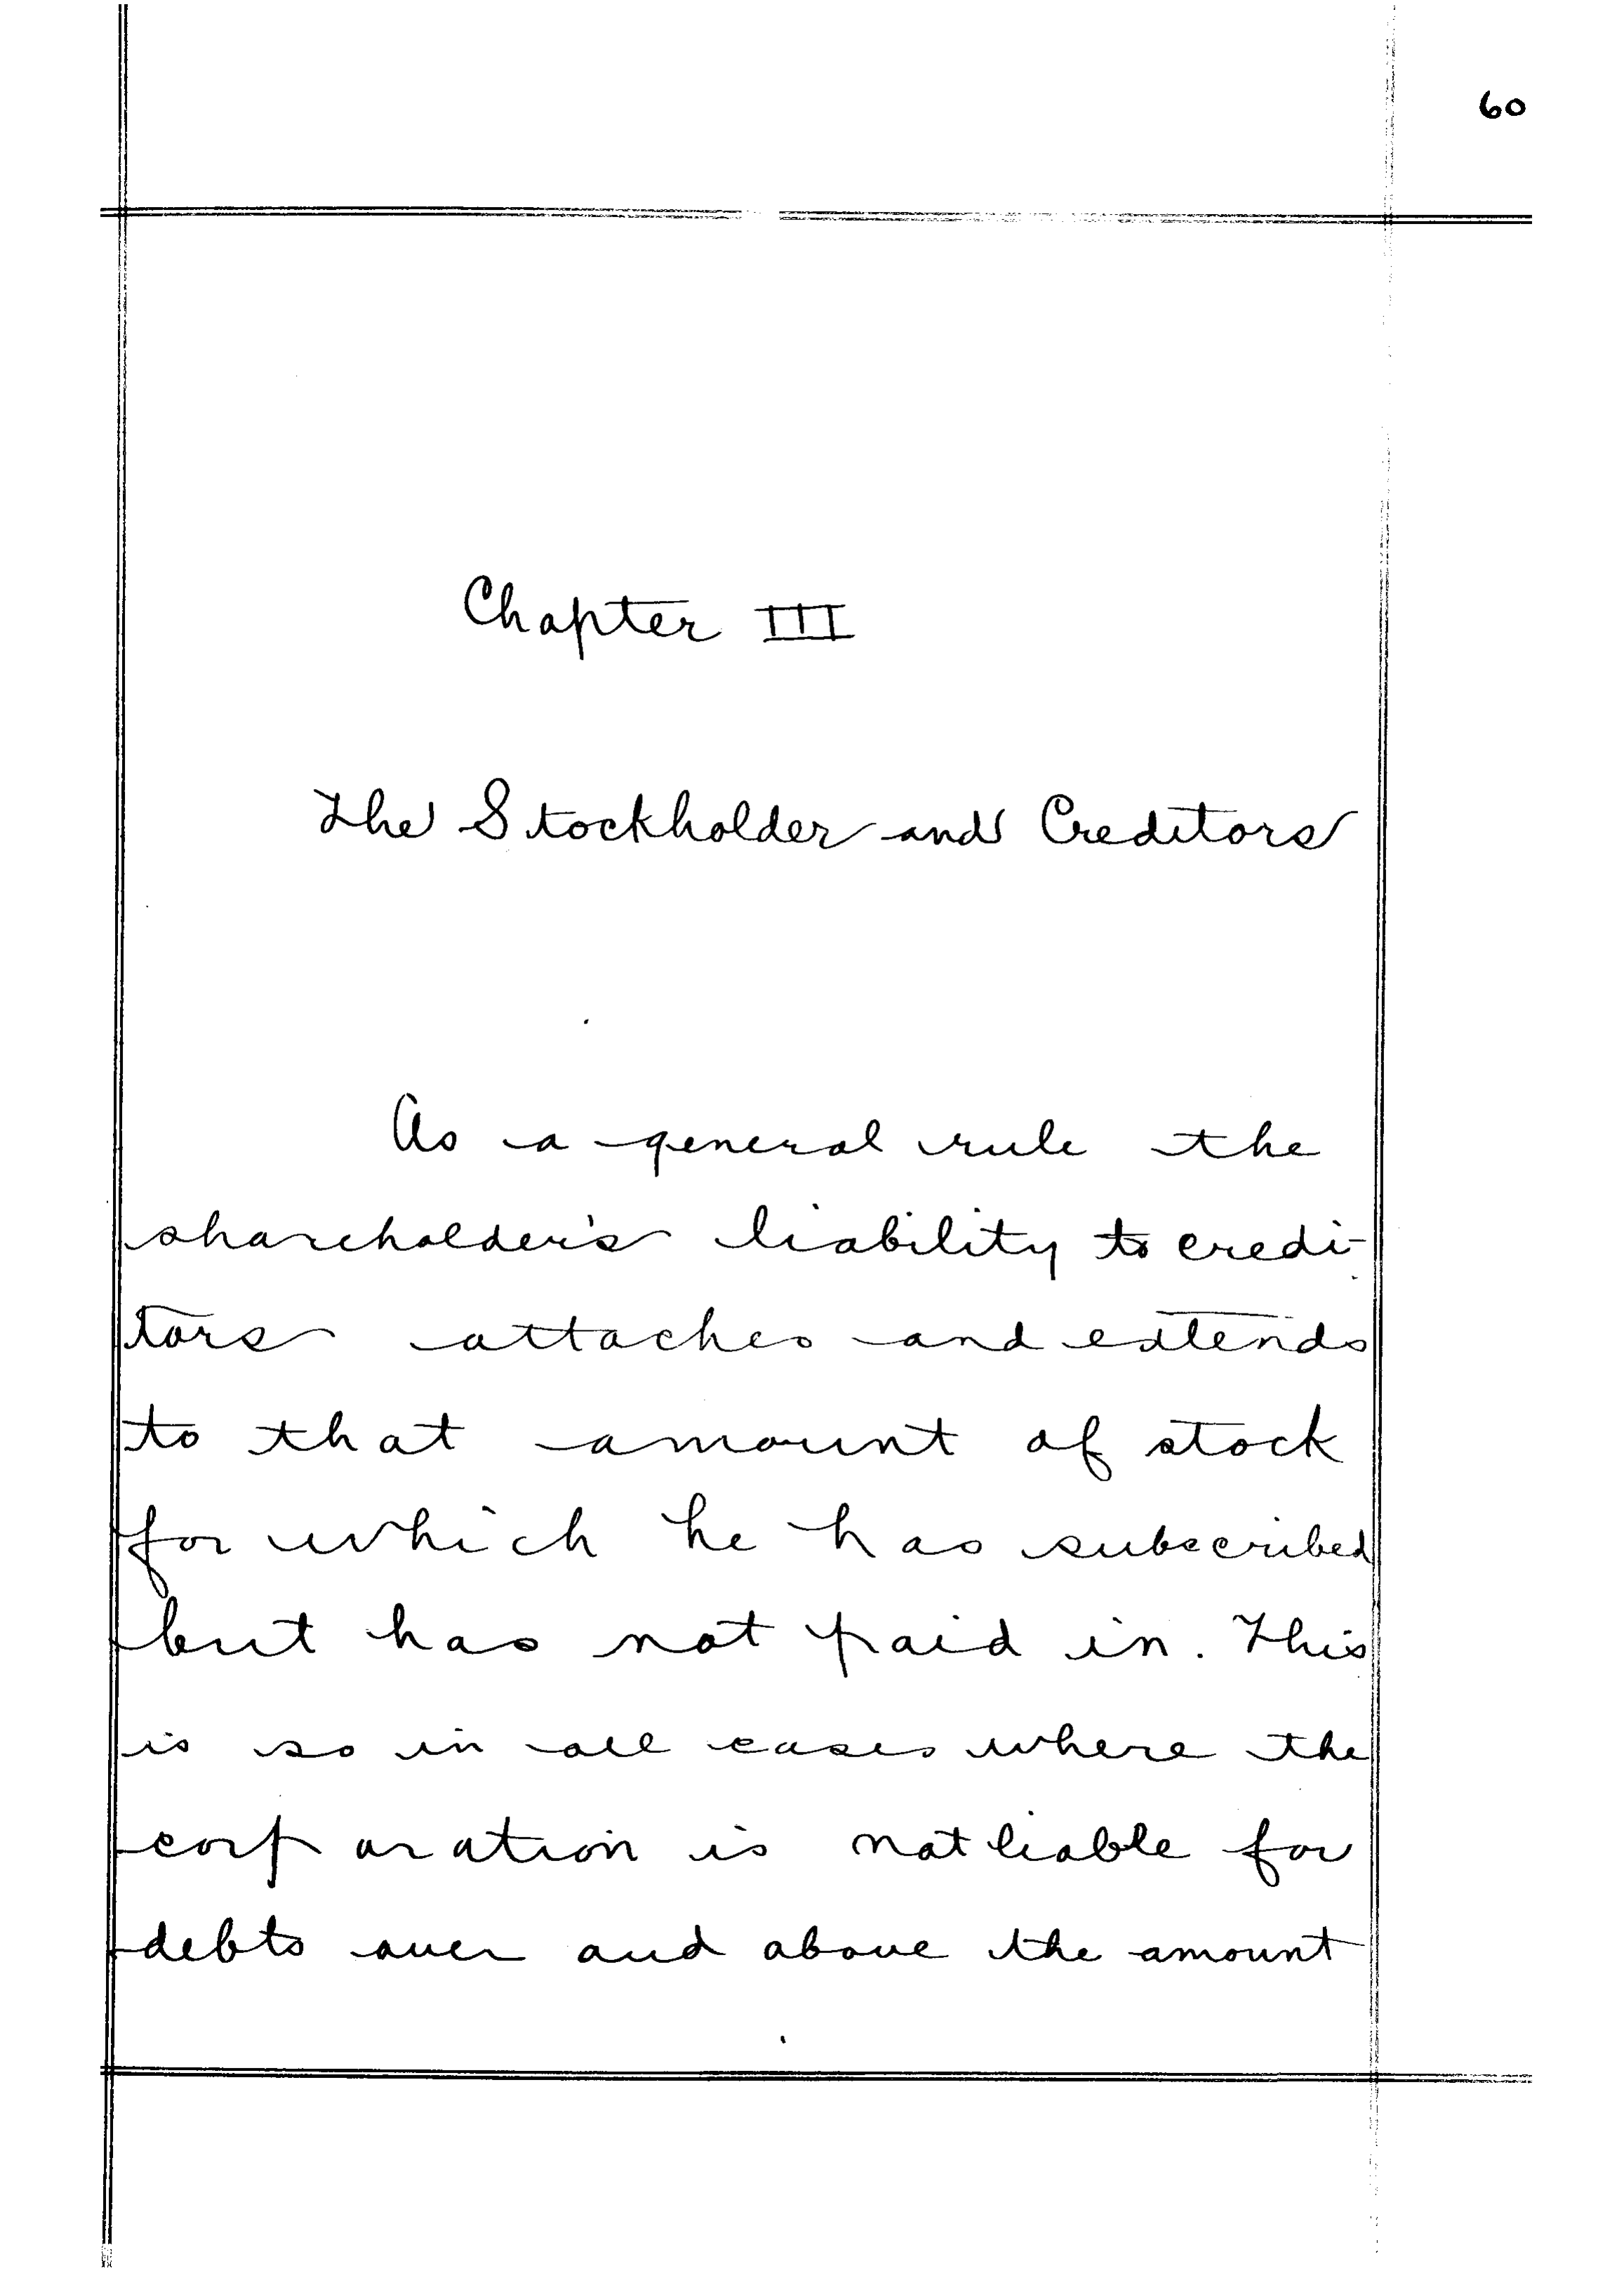 60
Chapter III
The Stockholder and Creditors
As a general rule the
shareholder's liability to credi-
tors attaches and extends
to that amount of stock
for which he has subscribed
but has not paid in. This
is so in all cases where the
corporation is not liable for
debts over and above the amount